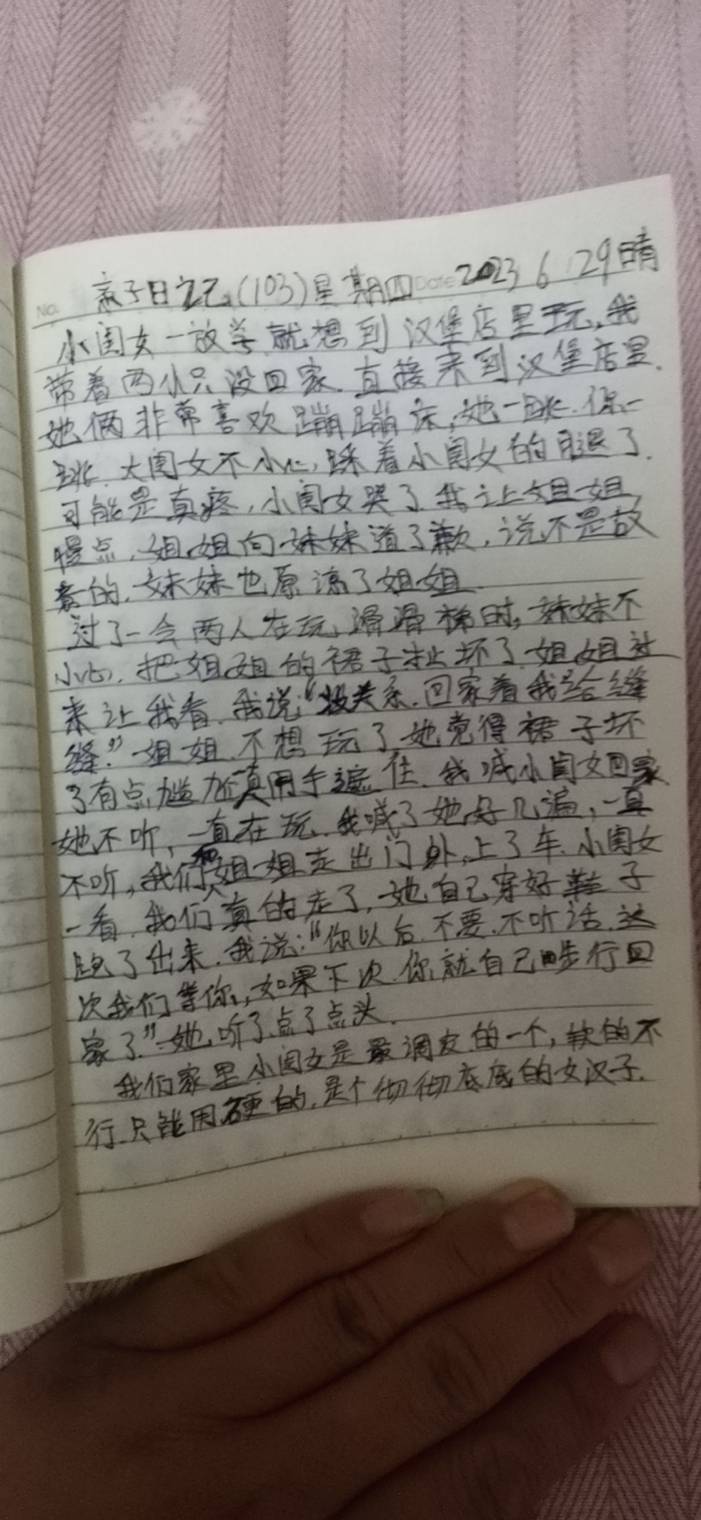 No. 亲子日记(103)星期四 Date 2023 6 29晴
小闺女一放学就想到汉堡店里玩,我
带着两小只没回家.直接来到汉堡店里.
她俩非常喜欢蹦蹦床,她一跳.你一
跳.大闺女不小心,踩着小闺女的腿了.
可能是真疼,小闺女哭了.我让姐姐
慢点,姐姐向妹妹道了歉,说不是故
意的,妹妹也原谅了姐姐.
过了一会两人在玩滑滑梯时,妹妹不
小心,把姐姐的裙子扯坏了.姐姐过
来让我看.我说:"没关系.回家着我给缝
缝."姐姐不想玩了她觉得裙子坏
了有点尴尬真用手遮住.我喊小闺女回家
她不听,一直在玩.我喊了她好几遍,一直
不听,我们和姐姐走出门外,上了车.小闺女
一看,我们真的走了,她自己穿好鞋子
跑了出来.我说:"你以后.不要.不听话.这
次我们等你,如果下次.你就自己步行回
家了"她听了点了点头.
我们家里小闺女是最调皮的一个,软的不
行.只能用硬的.是个彻彻底底的女汉子.